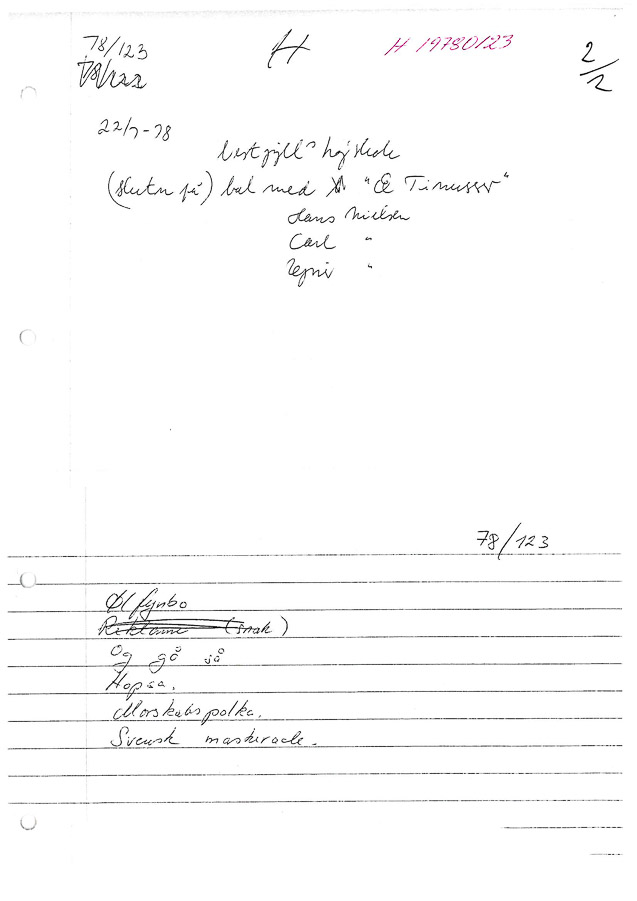 78/123
H
H 19780123
2/2
22/7-78
vestjyll højskole
(slutn på) bal med "Æ Timusser"
Hans Nielsen
Carl "
"
78/123
Øl fynbo
Reklame (snak)
Og gå så
Hopsa.
Morskabspolka.
Svensk maskerade.